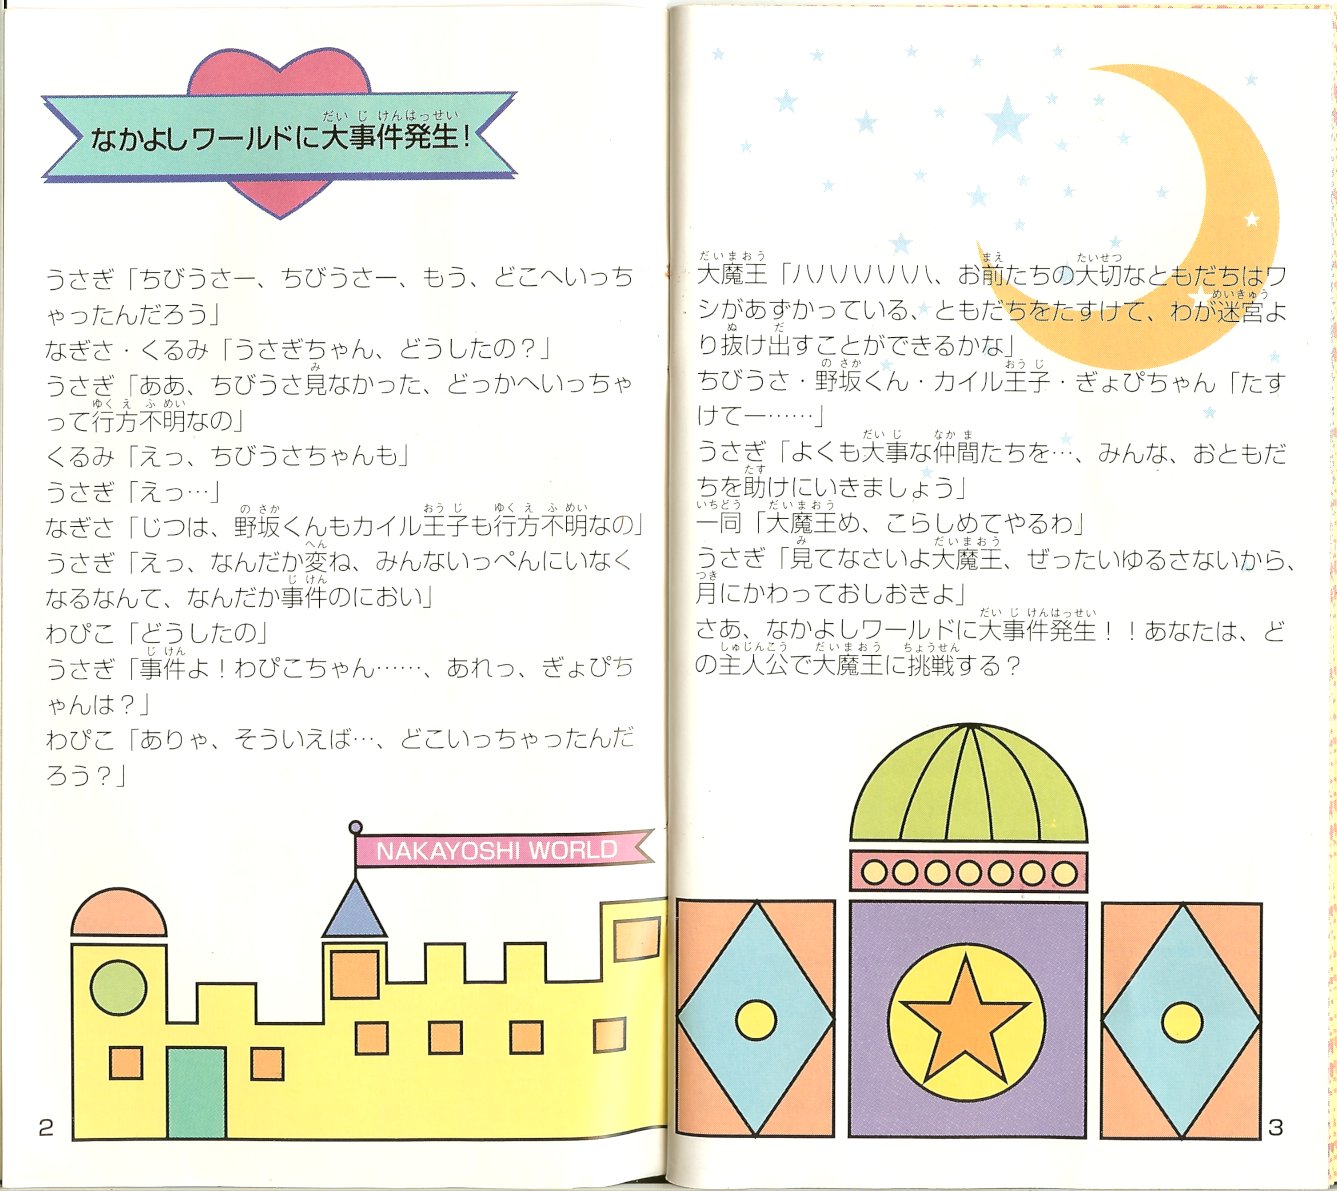 なかよしワールドに大事件発生！
うさぎ「ちびうさー、ちびうさー、もう、どこへいっち
ゃったんだろう」
なぎさ・くるみ「うさぎちゃん、どうしたの？」
うさぎ「ああ、ちびうさ見なかった、どっかへいっちゃ
って行方不明なの」
くるみ「えっ、ちびうさちゃんも」
うさぎ「えっ…」
なぎさ「じつは、野坂くんもカイル王子も行方不明なの」
うさぎ「えっ、なんだか変ね、みんないっぺんにいなく
なるなんて、なんだか事件のにおい」
わぴこ「どうしたの」
うさぎ「事件よ！わぴこちゃん……、あれっ、ぎょぴち
ゃんは？」
わぴこ「ありゃ、そういえば…、どこいっちゃったんだ
ろう？」
NAKAYOSHI WORLD
2
大魔王「ハハハハハハハ、お前たちの大切なともだちはワ
シがあずかっている、ともだちをたすけて、わが迷宮よ
り抜け出すことができるかな」
ちびうさ・野坂くん・カイル王子・ぎょぴちゃん「たす
けてー……」
うさぎ「よくも大事な仲間たちを…、みんな、おともだ
ちを助けにいきましょう」
一同「大魔王め、こらしめてやるわ」
うさぎ「見てなさいよ大魔王、ぜったいゆるさないから、
月にかわっておしおきよ」
さあ、なかよしワールドに大事件発生！！あなたは、ど
の主人公で大魔王に挑戦する？
3